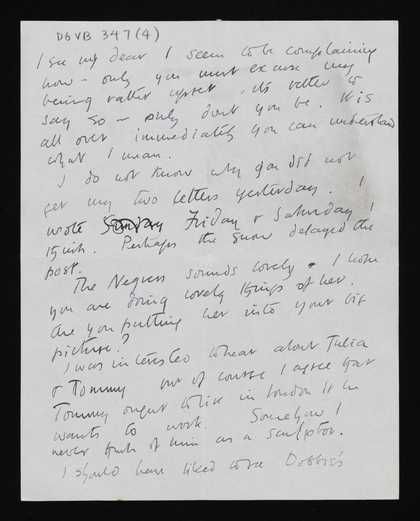 DGVB 347(4)
I see my dear I seem to be complaining
now – only you must excuse my
being rather upset – its better to
say so – only don't you be. It is
all over immediately you can understand
what I mean.
I do not know why you did not
get my two letters yesterday. I
wrote Friday & Saturday I
think. Perhaps the snow delayed the
post.
The Negress sounds lovely & I hope
you are doing lovely things of her.
Are you putting her into your big
picture?
I was interested to hear about Julia
& Tommy of course I agree that
Tommy ought to live in London if he
wants to work. Somehow I
never think of him as a sculptor.
I should have liked to see Dobson's